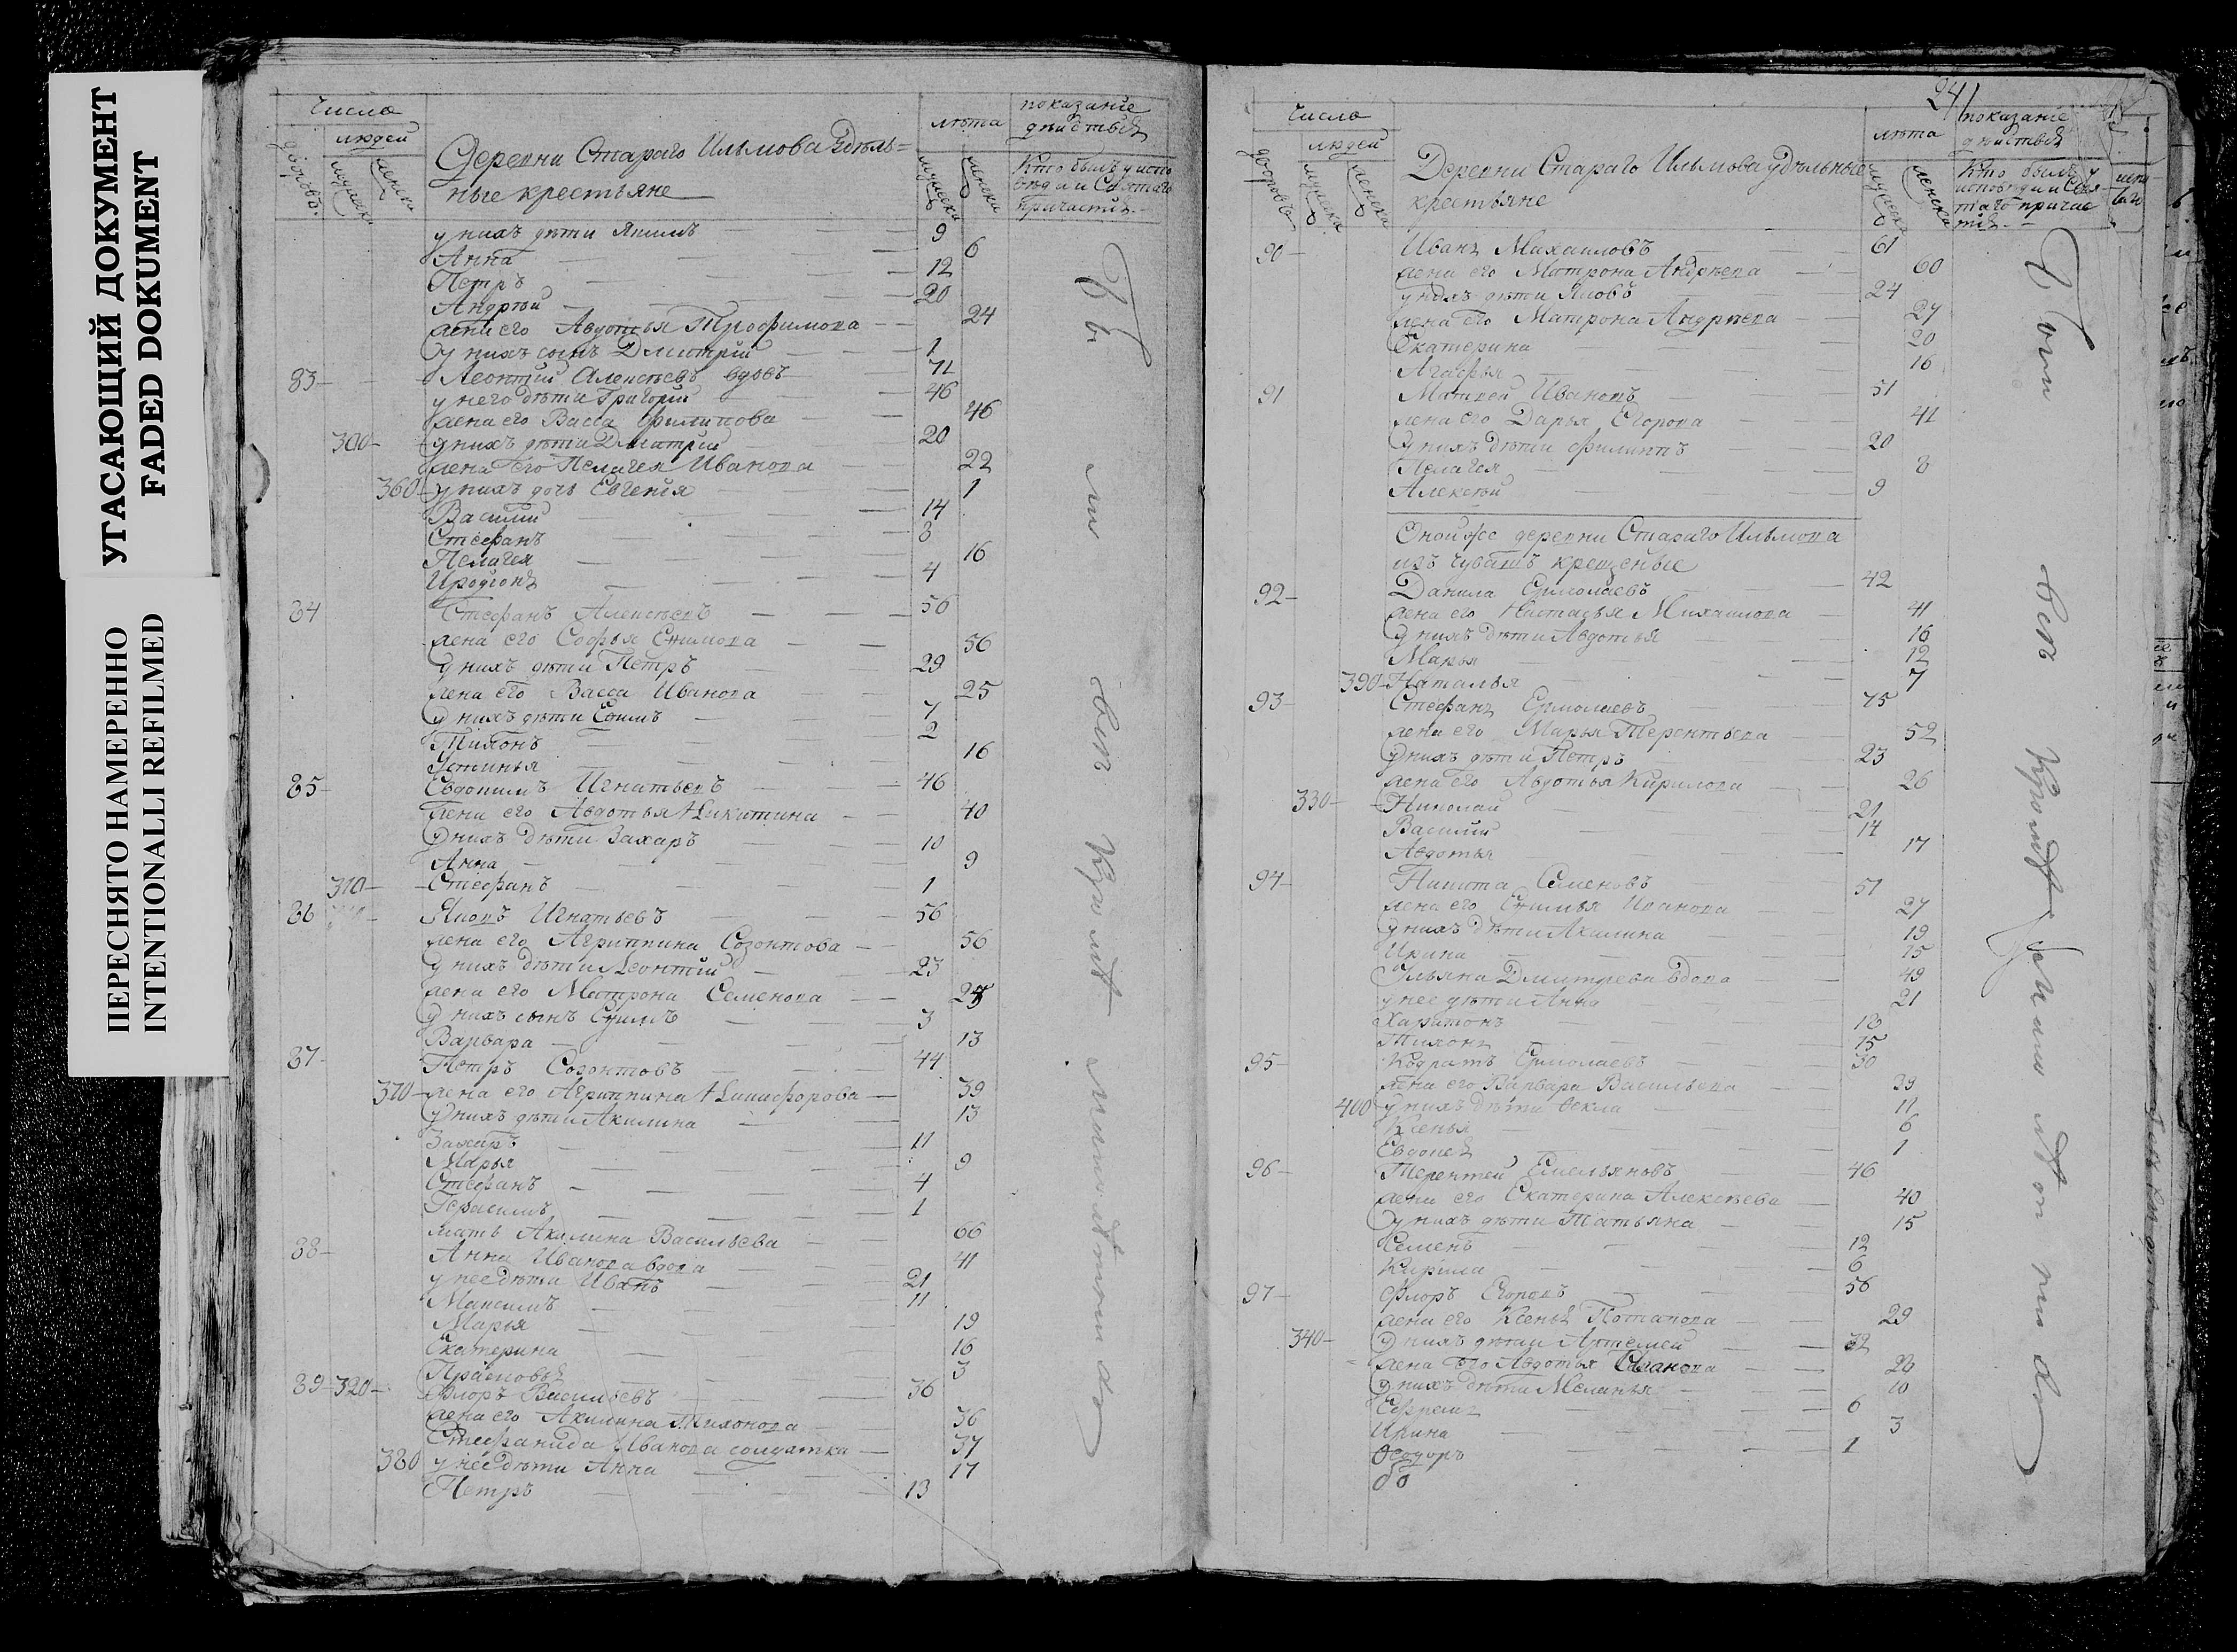 УГАСАЮЩИЙ ДОКУМЕНТ
FADED DOKUMENT
ПЕРЕСНЯТО НАМЕРЕННО
INTENTIONALLI REFILMED
Число
людей
дворовъ
мужеска
женска
Деревни Стараго Ильмова Удѣль=
ные крестьяне
лѣта
мужеска
женска
показаніе
дѣйствія
Кто былъ у испо
вѣди и Святаго
причастія
у нихъ дѣти Якимъ 9
Анна 6
Петръ 12
Андрей 20
жена его Авдотья Трофимова 24
У нихъ сынъ Дмитрій 1
83 Леонтій Алексѣевъ вдовъ 71
у него дѣти Григорій 46
жена его Васса Филипова 46
300 У нихъ дѣти Дмитрій 20
жена его Пелагея Иванова 22
360 у нихъ дочь Евгенія 1
Василій 14
Стефанъ 8
Пелагея 16
Иродіонъ 4
84 Стефанъ Алексѣевъ 56
жена его Софья Ефимова 56
У нихъ дѣти Петръ 29
жена его Васса Иванова 25
У нихъ дѣти Ефимъ 7
Тихонъ 2
Устинья 16
85 Евдокимъ Игнатьевъ 46
жена его Авдотья Никитина 40
У нихъ дѣти Захаръ 10
Анна 9
310 Стефанъ 1
86 Яковъ Игнатьевъ 56
жена его Агриппина Созонтова 56
У нихъ дѣти Леонтій 23
жена его Матрона Семенова
У нихъ сынъ Ефимъ 3
Варвара 13
87 Петръ Созонтовъ 44
370 жена его Агриппина Никифорова 39
У нихъ дѣти Акилина 13
Захаръ 11
Марья 9
Стефанъ 4
Герасимъ 1
мать Акилина Васильева 66
88 Анна Иванова вдова 41
у нее дѣти Иванъ 21
Максимъ 11
Марья 19
Екатерина 16
Прасковья 3
89 320 Флоръ Васильевъ 36
жена его Акилина Тихонова 36
Стефанида Иванова солдатка 37
380 у нее дѣти Анна 17
Петръ 13
241
Число
людей
дворовъ
мужеска
женска
Деревни Стараго Ильмова удѣльные
крестьяне
лѣта
мужеска
женска
показаніе
дѣйствія
Кто былъ у
исповѣди и Свя-
таго причас
тія
90 Иванъ Михаиловъ 61
жена его Матрона Андрѣева 60
у нихъ дѣти Яковъ 24
жена его Матрона Андрѣева 27
Екатерина 20
Агафья 16
91 Матвей Ивановъ 51
жена его Дарья Егорова 41
У нихъ дѣти Филиппъ 20
Пелагея 8
Алексѣй 9
Оной же деревни Стараго Ильмова
изъ чувашъ крещеные
92 Данила Ермолаевъ 42
жена его Настасья Михаилова 41
У нихъ дѣти Авдотья 16
Марья 12
390 Наталья 7
93 Стефанъ Ермолаевъ 75
жена его Марья Терентьева 52
У нихъ дѣти Петръ 23
жена его Авдотья Кирилова 26
330 Николай 21
Василій 14
Авдотья 17
94 Никита Семеновъ 51
жена его Ефимья Иванова 27
У нихъ дѣти Акилина 19
Ирина 15
Ульяна Дмитрева вдова 49
у нее дѣти Анна 21
Харитонъ 18
Тихонъ 15
95 Кодратъ Ермолаевъ 30
жена его Варвара Васильева 29
400 У нихъ дѣти Ѳекла 11
Ксенья 6
Евдокея 1
96 Терентей Емельяновъ 46
жена его Екатерина Алексѣева 40
У нихъ дѣти Татьяна 15
Семенъ 12
Кирила 6
97 Флоръ Егоровъ 56
жена его Ксенья Потапова 29
340 У нихъ дѣти Артемей 32
жена его Авдотья
У нихъ дѣти Меланья 10
Ефремъ 6
Ирина 3
Ѳеодоръ 1